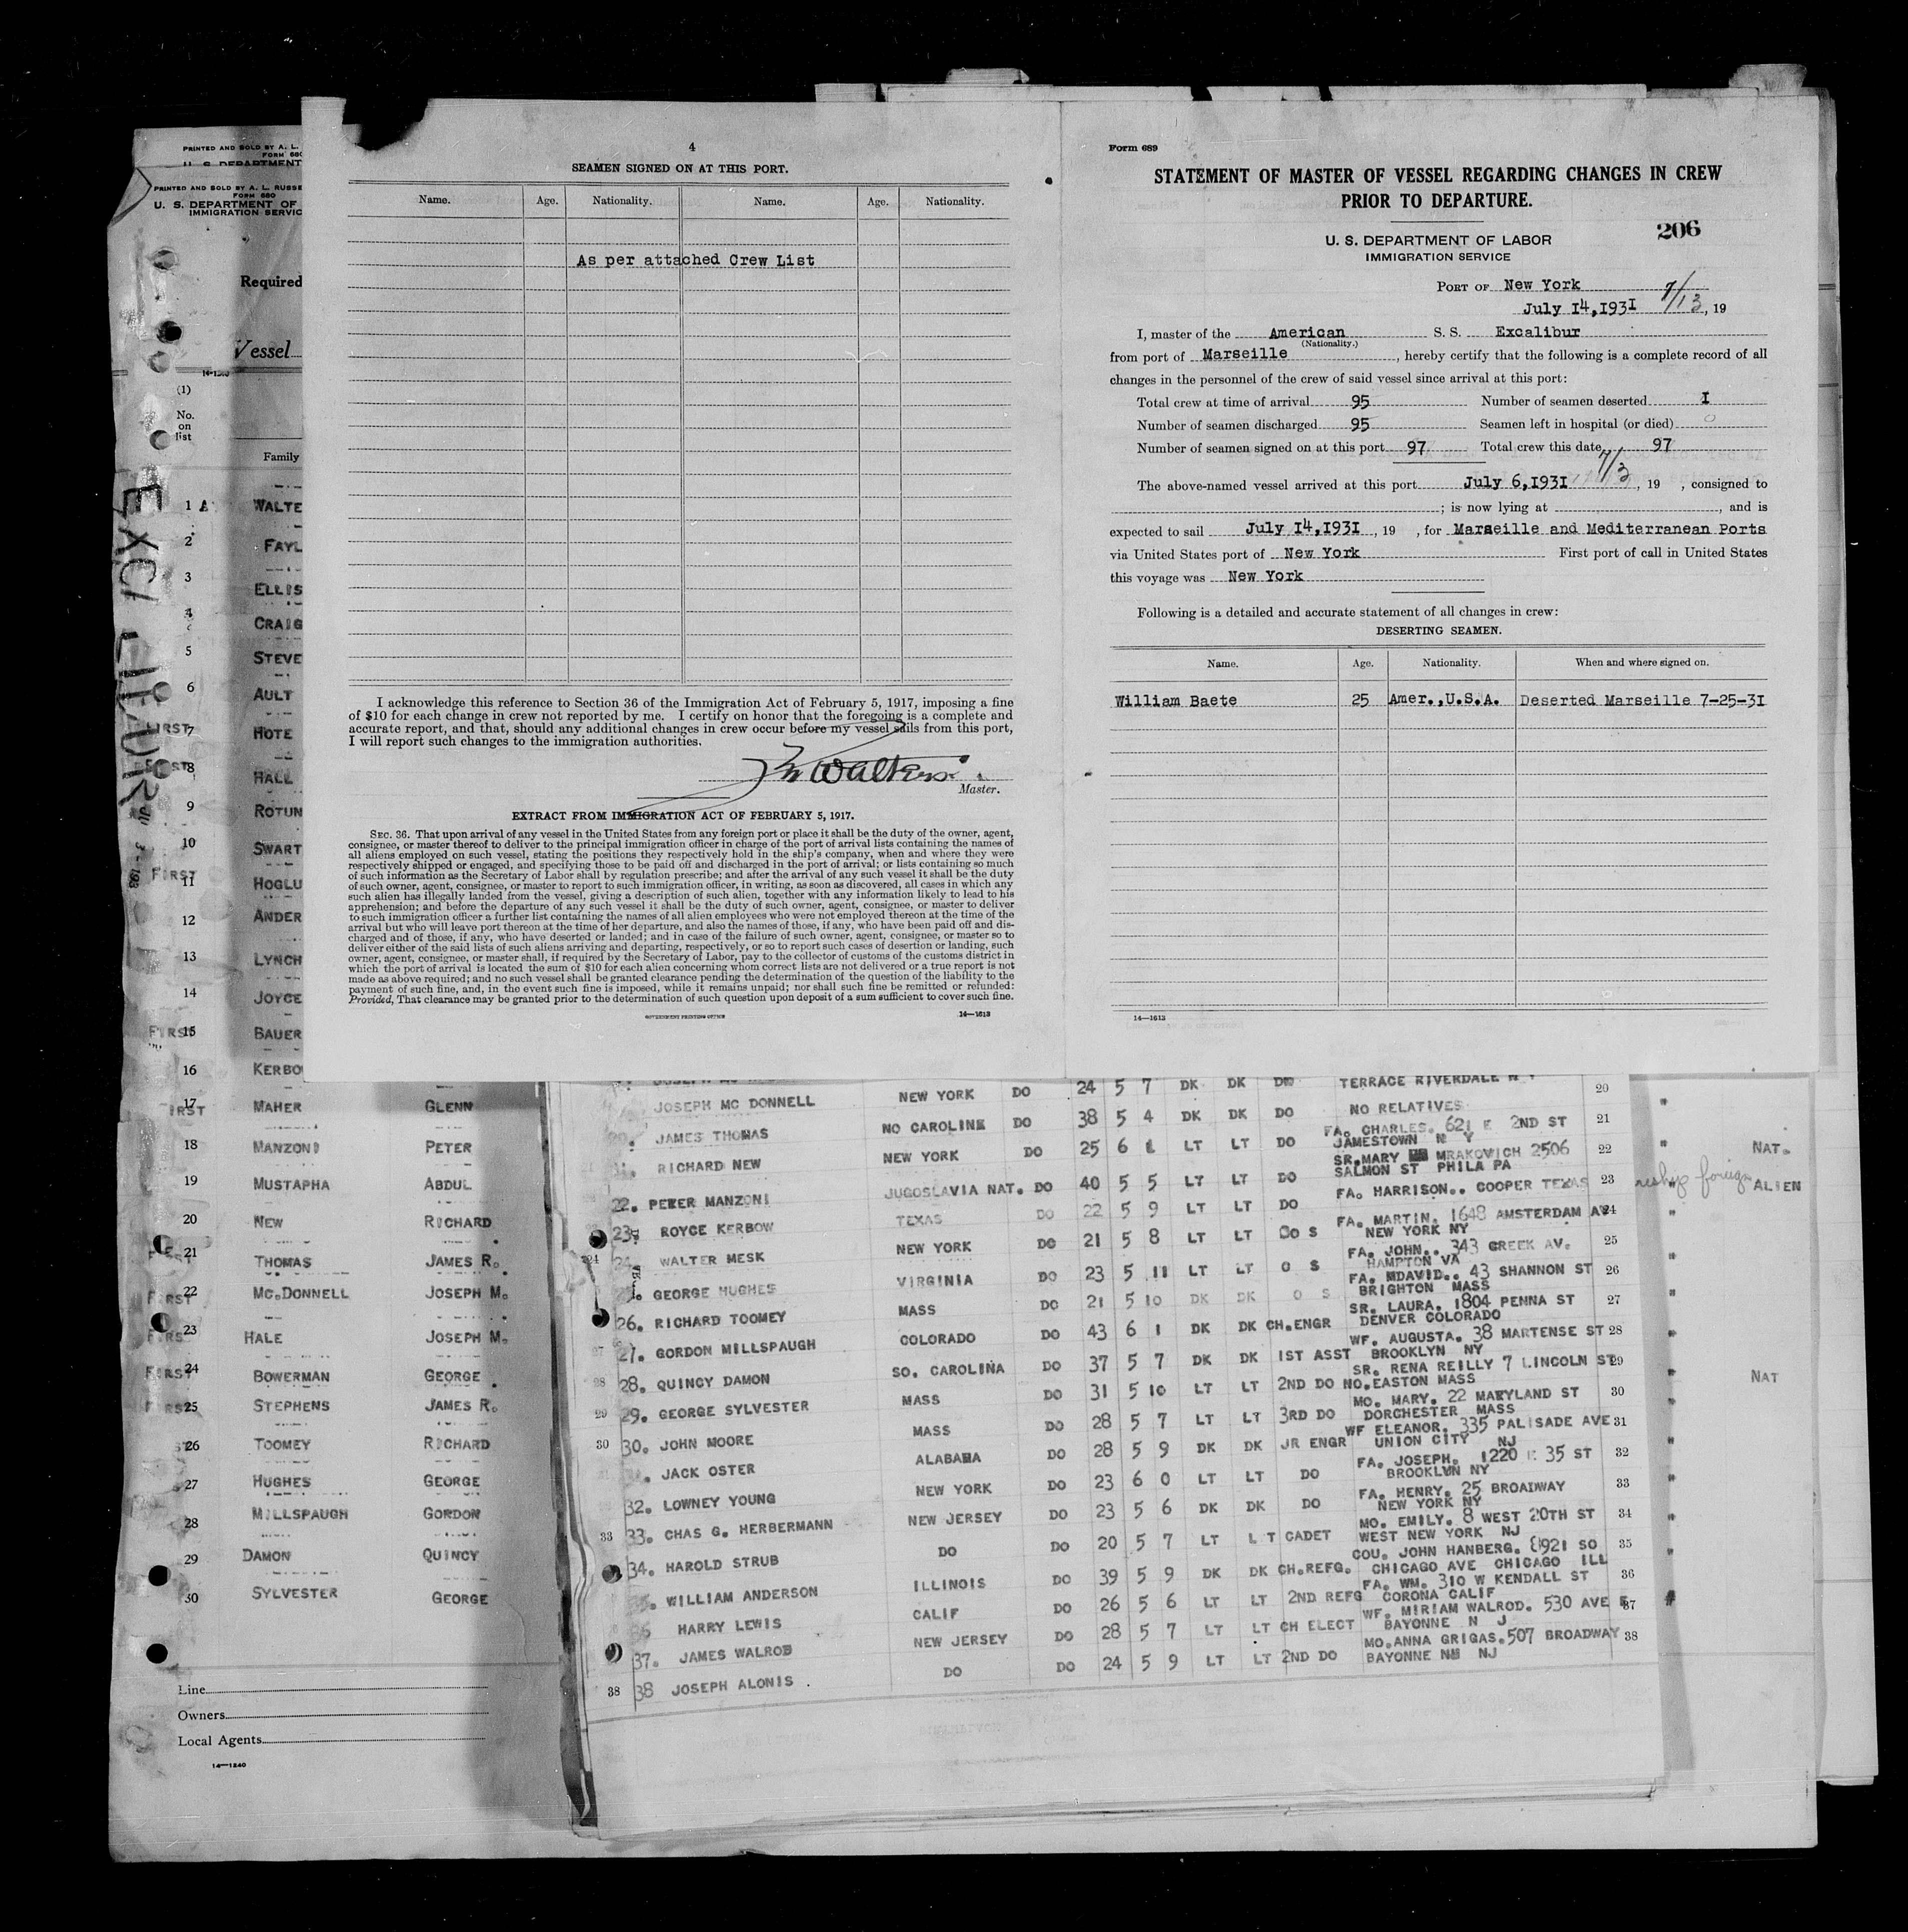 4
SEAMEN SIGNED ON AT THIS PORT.
Name. Age. Nationality. Name. Age. Nationality.
As per attached Crew List
I acknowledge this reference to Section 36 of the Immigration Act of February 5, 1917, imposing a fine
of $10 for each change in crew not reported by me. I certify on honor that the foregoing is a complete and
accurate report, and that, should any additional changes in crew occur before my vessel sails from this port,
I will report such changes to the immigration authorities.
Walters
Master.
EXTRACT FROM IMMIGRATION ACT OF FEBRUARY 5, 1917.
SEC. 36. That upon arrival of any vessel in the United States from any foreign port or place it shall be the duty of the owner, agent,
consignee, or master thereof to deliver to the principal immigration officer in charge of the port of arrival lists containing the names of
all aliens employed on such vessel, stating the positions they respectively hold in the ship's company, when and where they were
respectively shipped or engaged, and specifying those to be paid off and discharged in the port of arrival; or lists containing so much
of such information as the Secretary of Labor shall by regulation prescribe; and after the arrival of any such vessel it shall be the duty
of such owner, agent, consignee, or master to report to such immigration officer, in writing, as soon as discovered, all cases in which any
such alien has illegally landed from the vessel, giving a description of such alien, together with any information likely to lead to his
apprehension; and before the departure of any such vessel it shall be the duty of such owner, agent, consignee, or master to deliver
to such immigration officer a further list containing the names of all alien employees who were not employed thereon at the time of the
arrival but who will leave port thereon at the time of her departure, and also the names of those, if any, who have been paid off and dis-
charged and of those, if any, who have deserted or landed; and in case of the failure of such owner, agent, consignee, or master so to
deliver either of the said lists of such aliens arriving and departing, respectively, or so to report such cases of desertion or landing, such
owner, agent, consignee, or master shall, if required by the Secretary of Labor, pay to the collector of customs of the customs district in
which the port of arrival is located the sum of $10 for each alien concerning whom correct lists are not delivered or a true report is not
made as above required; and no such vessel shall be granted clearance pending the determination of the question of the liability to the
payment of such fine, and, in the event such fine is imposed, while it remains unpaid; nor shall such fine be remitted or refunded:
Provided, That clearance may be granted prior to the determination of such question upon deposit of a sum sufficient to cover such fine.
GOVERNMENT PRINTING OFFICE 14—1613
Form 689
STATEMENT OF MASTER OF VESSEL REGARDING CHANGES IN CREW
PRIOR TO DEPARTURE.
206
U. S. DEPARTMENT OF LABOR
IMMIGRATION SERVICE
PORT OF New York
July 14,1931 7/13, 19
I, master of the American S. S. Excalibur
(Nationality.)
from port of Marseille, hereby certify that the following is a complete record of all
changes in the personnel of the crew of said vessel since arrival at this port:
Total crew at time of arrival 95 Number of seamen deserted I
Number of seamen discharged 95 Seamen left in hospital (or died) 0
Number of seamen signed on at this port 97 Total crew this date 97
The above-named vessel arrived at this port July 6,1931 7/3, 19 , consigned to
; is now lying at , and is
expected to sail July 14,1931, 19 , for Marseille and Mediterranean Ports
via United States port of New York First port of call in United States
this voyage was New York
Following is a detailed and accurate statement of all changes in crew:
DESERTING SEAMEN.
Name. Age. Nationality. When and where signed on.
William Baete 25 Amer.,U.S.A. Deserted Marseille 7-25-31
14—1613
PRINTED AND SOLD BY A. L.
FORM 680
U. S. DEPARTMENT
PRINTED AND SOLD BY A. L. RUSSE
FORM 680
U. S. DEPARTMENT OF
IMMIGRATION SERVIC
Required
Vessel
14-1240
(1)
No.
on
list
Family
EXCALIBUR
1 WALTE
2 FAYL
3 ELLIS
4 CRAIG
5 STEVE
6 AULT
7 HOTE
8 HALL
9 ROTUN
10 SWART
FIRST
11 HOGLU
12 ANDER
13 LYNCH
14 JOYCE
FIRST 15 BAUER
16 KERBO
FIRST 17 MAHER GLENN
18 MANZONI PETER
19 MUSTAPHA ABDUL
20 NEW RICHARD
21 THOMAS JAMES R.
FIRST 22 MC.DONNELL JOSEPH M.
FIRST 23 HALE JOSEPH M.
FIRST 24 BOWERMAN GEORGE
FIRST 25 STEPHENS JAMES R.
26 TOOMEY RICHARD
27 HUGHES GEORGE
28 MILLSPAUGH GORDON
29 DAMON QUINCY
30 SYLVESTER GEORGE
Line
Owners
Local Agents
14—1240
24 5 7 DK DK DO TERRACE RIVERDALE N Y 20
JOSEPH MC DONNELL NEW YORK DO 38 5 4 DK DK DO NO RELATIVES 21
JAMES THOMAS NO CAROLINE DO 25 6 1 LT LT DO FA. CHARLES. 621 E 2ND ST
JAMESTOWN N Y 22
RICHARD NEW NEW YORK DO 40 5 5 LT LT DO SR.MARY MRAKOVICH 2506
SALMON ST PHILA PA 23
22. PETER MANZONI JUGOSLAVIA NAT. DO 22 5 9 LT LT DO FA. HARRISON.. COOPER TEXAS 24
23. ROYCE KERBOW TEXAS DO 21 5 8 LT LT O S FA. MARTIN. 1648 AMSTERDAM AV
NEW YORK NY 25
24 WALTER MESK NEW YORK DO 23 5 11 LT LT O S FA. JOHN.. 343 GREEK AV.
HAMPTON VA 26
GEORGE HUGHES VIRGINIA DO 21 5 10 DK DK O S FA. MDAVID.. 43 SHANNON ST
BRIGHTON MASS 27
26. RICHARD TOOMEY MASS DO 43 6 1 DK DK CH.ENGR SR. LAURA. 1804 PENNA ST
DENVER COLORADO 28
27. GORDON MILLSPAUGH COLORADO DO 37 5 7 DK DK 1ST ASST WF. AUGUSTA. 38 MARTENSE ST
BROOKLYN NY 29
28. QUINCY DAMON SO. CAROLINA DO 31 5 10 LT LT 2ND DO SR. RENA REILLY 7 LINCOLN ST
NO.EASTON MASS 30
29. GEORGE SYLVESTER MASS DO 28 5 7 LT LT 3RD DO MO. MARY. 22 MARYLAND ST
DORCHESTER MASS 31
30. JOHN MOORE MASS DO 28 5 9 DK DK JR ENGR WF ELEANOR. 335 PALISADE AVE
UNION CITY NJ 32
JACK OSTER ALABAMA DO 23 6 0 LT LT DO FA. JOSEPH. 1220 E 35 ST
BROOKLYN NY 33
32. LOWNEY YOUNG NEW YORK DO 23 5 6 DK DK DO FA. HENRY. 25 BROADWAY
NEW YORK NY 34
33 33. CHAS G. HERBERMANN NEW JERSEY DO 20 5 7 LT L T CADET MO. EMILY. 8 WEST 20TH ST
WEST NEW YORK NJ 35
34. HAROLD STRUB DO DO 39 5 9 DK DK CH.REFG. COU. JOHN HANBERG. 8921 SO
CHICAGO AVE CHICAGO ILL 36
WILLIAM ANDERSON ILLINOIS DO 26 5 6 LT LT 2ND REFG FA. WM. 310 W KENDALL ST
CORONA CALIF 37
HARRY LEWIS CALIF DO 28 5 7 LT LT CH ELECT WF. MIRIAM WALROD. 530 AVE E
BAYONNE N J 38
37. JAMES WALROB NEW JERSEY DO 24 5 9 LT LT 2ND DO MO.ANNA GRIGAS.507 BROADWAY
BAYONNE NJ
38 38 JOSEPH ALONIS DO DO
NAT.
foreign ALIEN
NAT